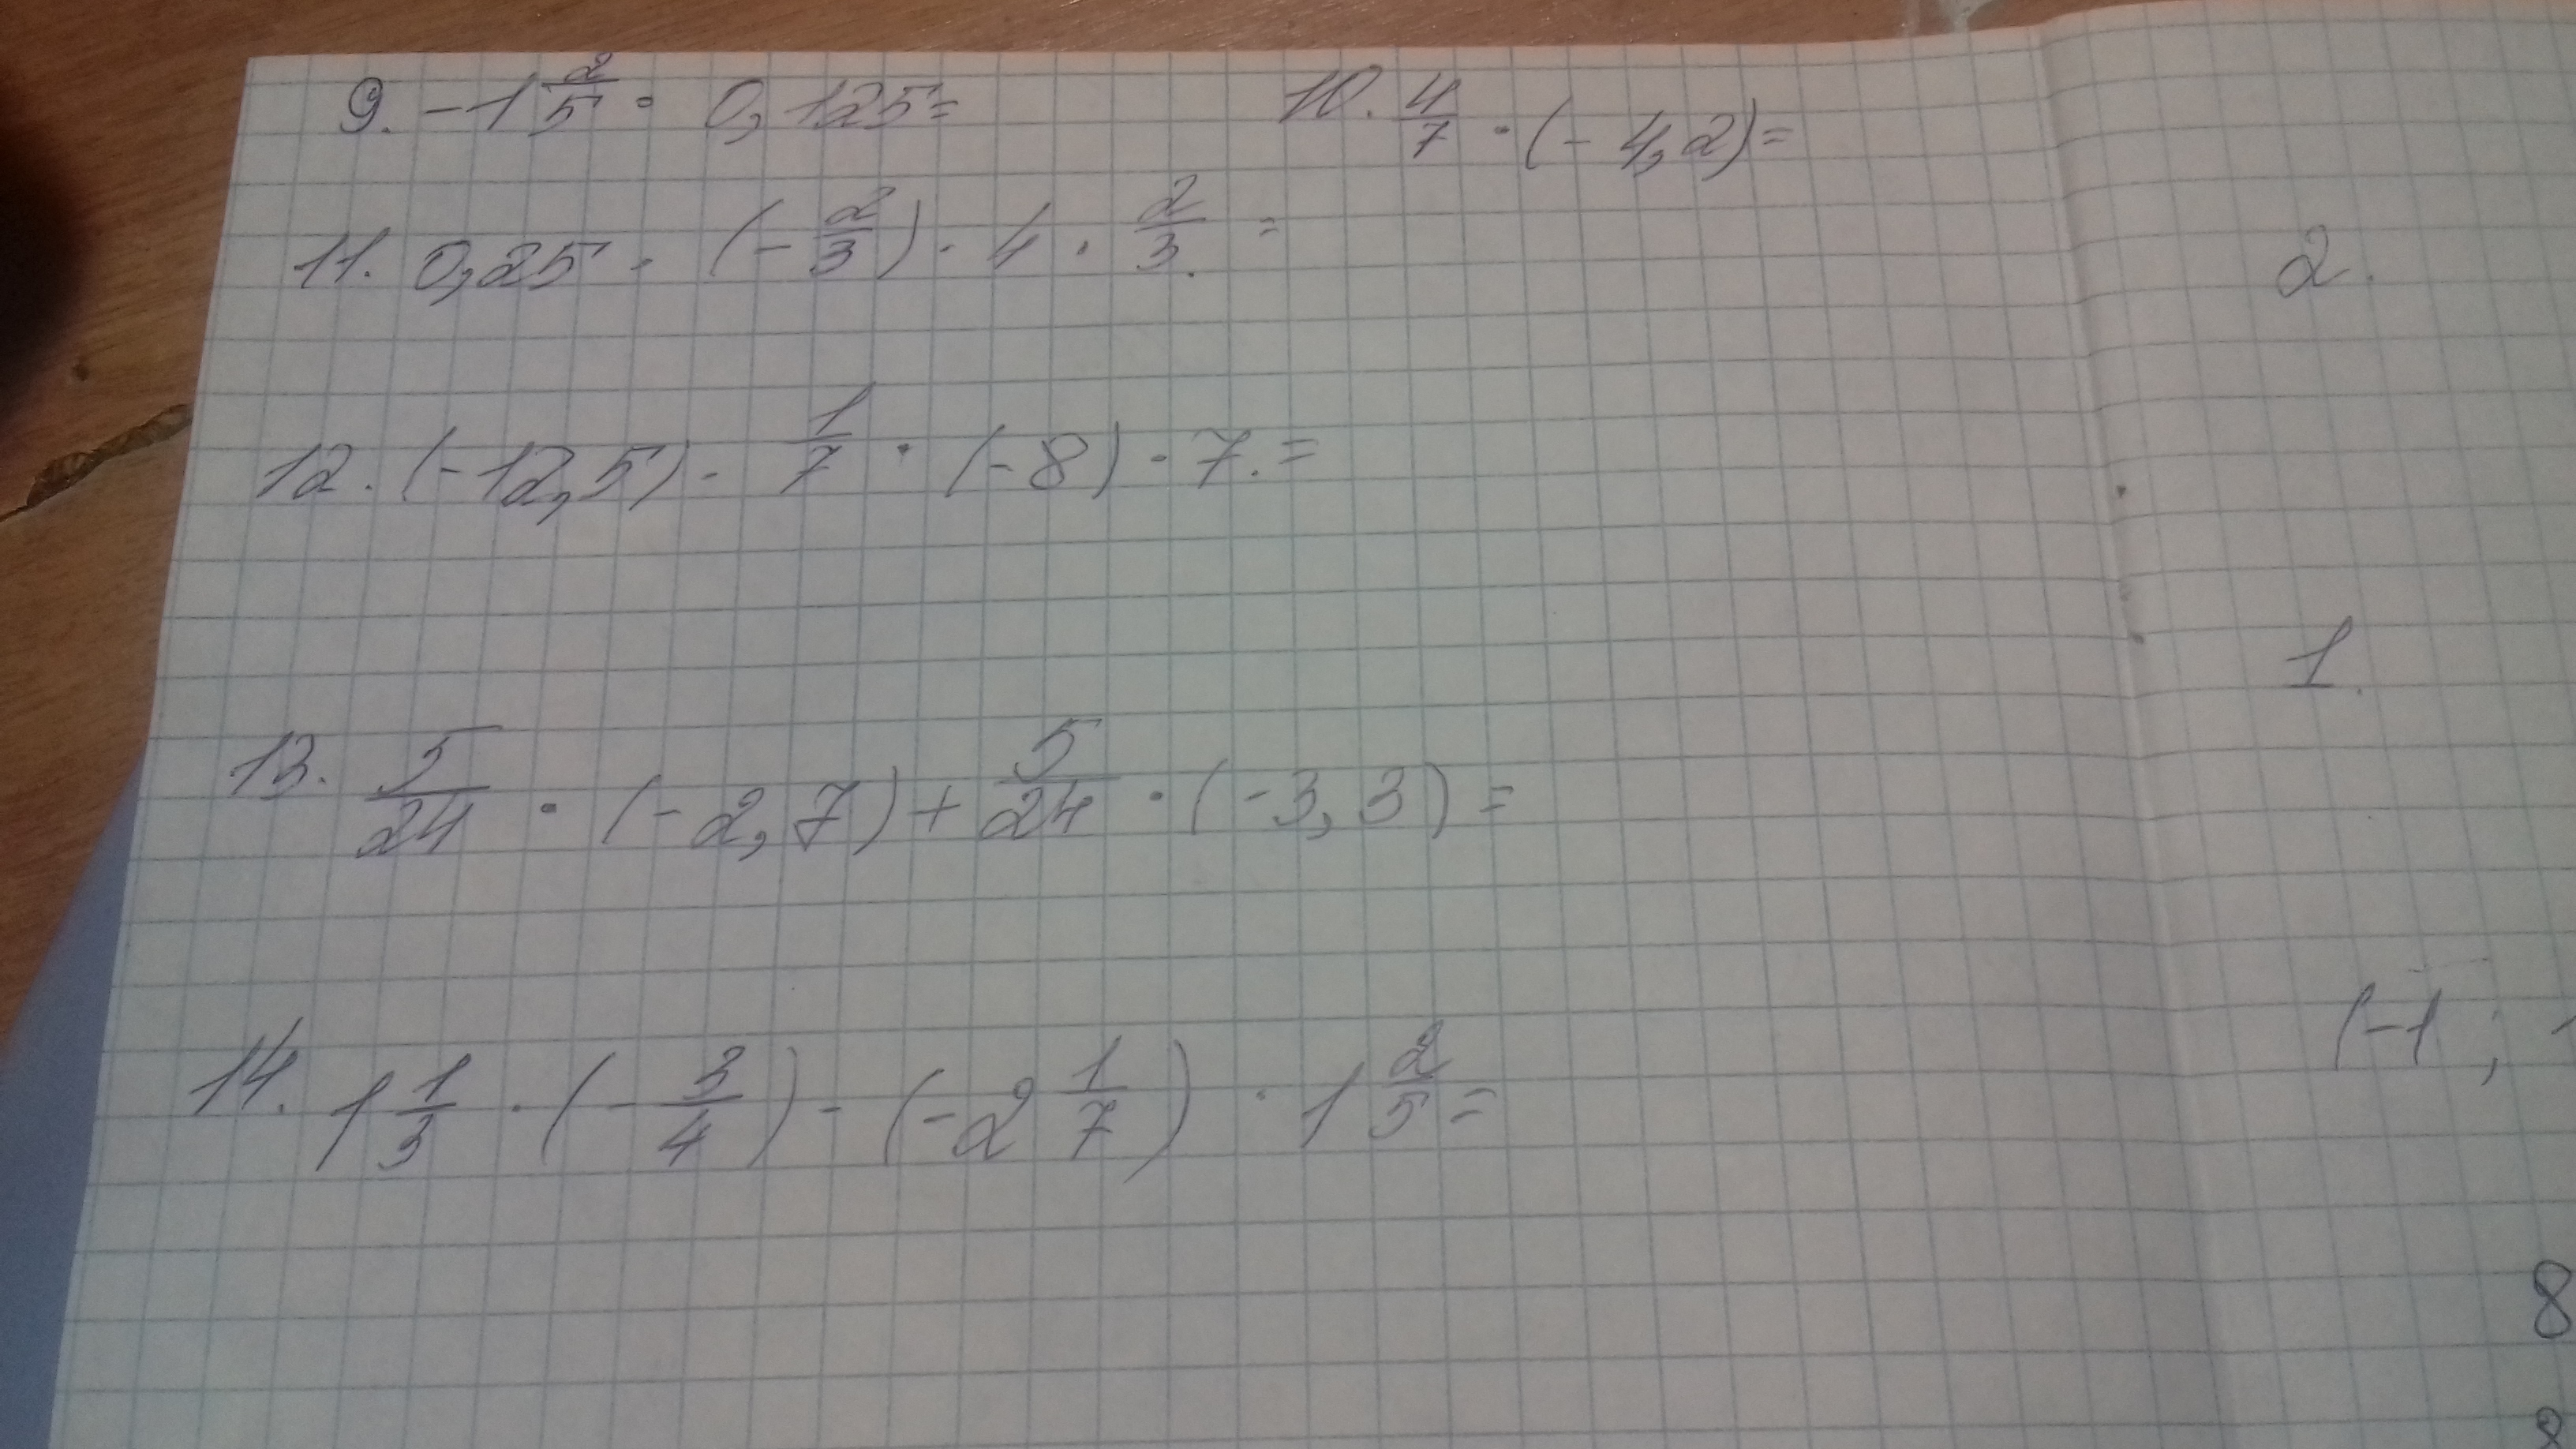 9. -1 2/5 · 0,125=
10. 4/7 · (- 4,2)=
11. 0,25 · (- 2/3) · 4 · 2/3. =
2.
12. (-12,5) · 1/7 · (-8) · 7. =
1.
13. 5/24 · (- 2,7) + 5/24 · (-3,3) =
(-1 ;
14. 1 1/3 · (- 3/4) - (-2 1/7) · 1 2/5 =
8